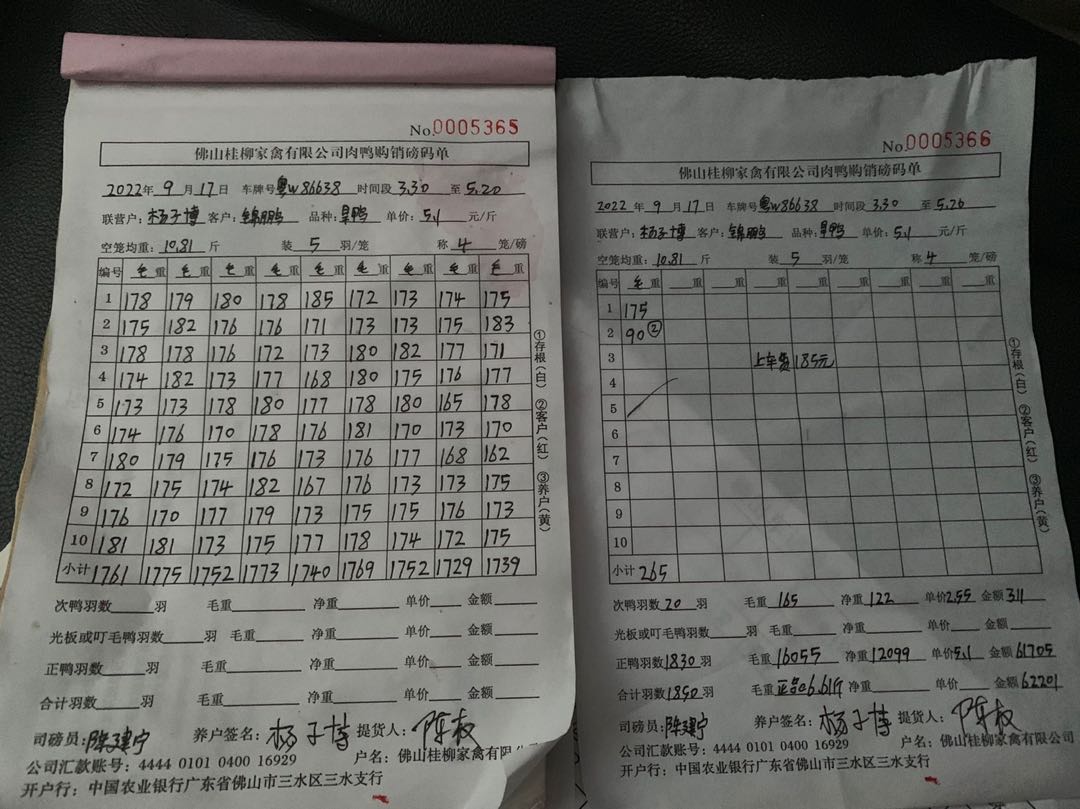 No.0005365
佛山桂柳家禽有限公司肉鸭购销磅码单
2022年 9月 17日 车牌号粤W86638 时间段 3.30 至 5.20
联营户:杨子博 客户:锦鹏 品种:旱鸭 单价:5.1 元/斤
空笼均重:10.81 斤 装 5 羽/笼 称 4 笼/磅
编号 毛重 毛重 毛重 毛重 毛重 毛重 毛重 毛重 毛重
1 178 179 180 178 185 172 173 174 175
2 175 182 176 176 171 173 173 175 183
3 178 178 176 172 173 180 182 177 171
4 174 182 173 177 168 180 175 176 177
5 173 173 178 180 177 178 180 165 178
6 174 176 170 178 176 181 170 173 170
7 180 179 175 176 173 176 177 168 162
8 172 175 174 182 167 176 173 173 175
9 176 170 177 179 173 175 175 176 173
10 181 181 173 175 177 178 174 172 175
小计 1761 1775 1752 1773 1740 1769 1752 1729 1739
次鸭羽数 羽 毛重 净重 单价 金额
光板或叮毛鸭羽数 羽 毛重 净重 单价 金额
正鸭羽数 羽 毛重 净重 单价 金额
合计羽数 羽 毛重 净重 单价 金额
司磅员:陈建宁 养户签名:杨子博 提货人:陈权
公司汇款账号:4444 0101 0400 16929 户名:佛山桂柳家禽有限公司
开户行:中国农业银行广东省佛山市三水区三水支行
①存根(白) ②客户(红) ③养户(黄)
No.0005366
佛山桂柳家禽有限公司肉鸭购销磅码单
2022年 9月 17日 车牌号粤W86638 时间段 3.30 至 5.20
联营户:杨子博 客户:锦鹏 品种:旱鸭 单价:5.1 元/斤
空笼均重:10.81 斤 装 5 羽/笼 称 4 笼/磅
编号 毛重 重 重 重 重 重 重 重 重
1 175
2 90②
3 上车费185元
4
5
6
7
8
9
10
小计 265
次鸭羽数 20 羽 毛重 165 净重 122 单价2.55 金额 311
光板或叮毛鸭羽数 羽 毛重 净重 单价 金额
正鸭羽数1830羽 毛重16055 净重12099 单价5.1 金额61705
合计羽数1850羽 毛重 6.61斤 净重 单价 金额62201
司磅员:陈建宁 养户签名:杨子博 提货人:陈权
公司汇款账号:4444 0101 0400 16929 户名:佛山桂柳家禽有限公司
开户行:中国农业银行广东省佛山市三水区三水支行
①存根(白) ②客户(红) ③养户(黄)